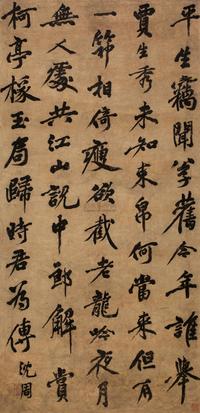 平生竊聞公子舊今年誰舉
賈生秀未知束帛何當來但有
一笻相倚瘦欲截老龍吟夜月
無人處共江山說中郎解賞
柯亭椽玉局歸時君為傳
沈周